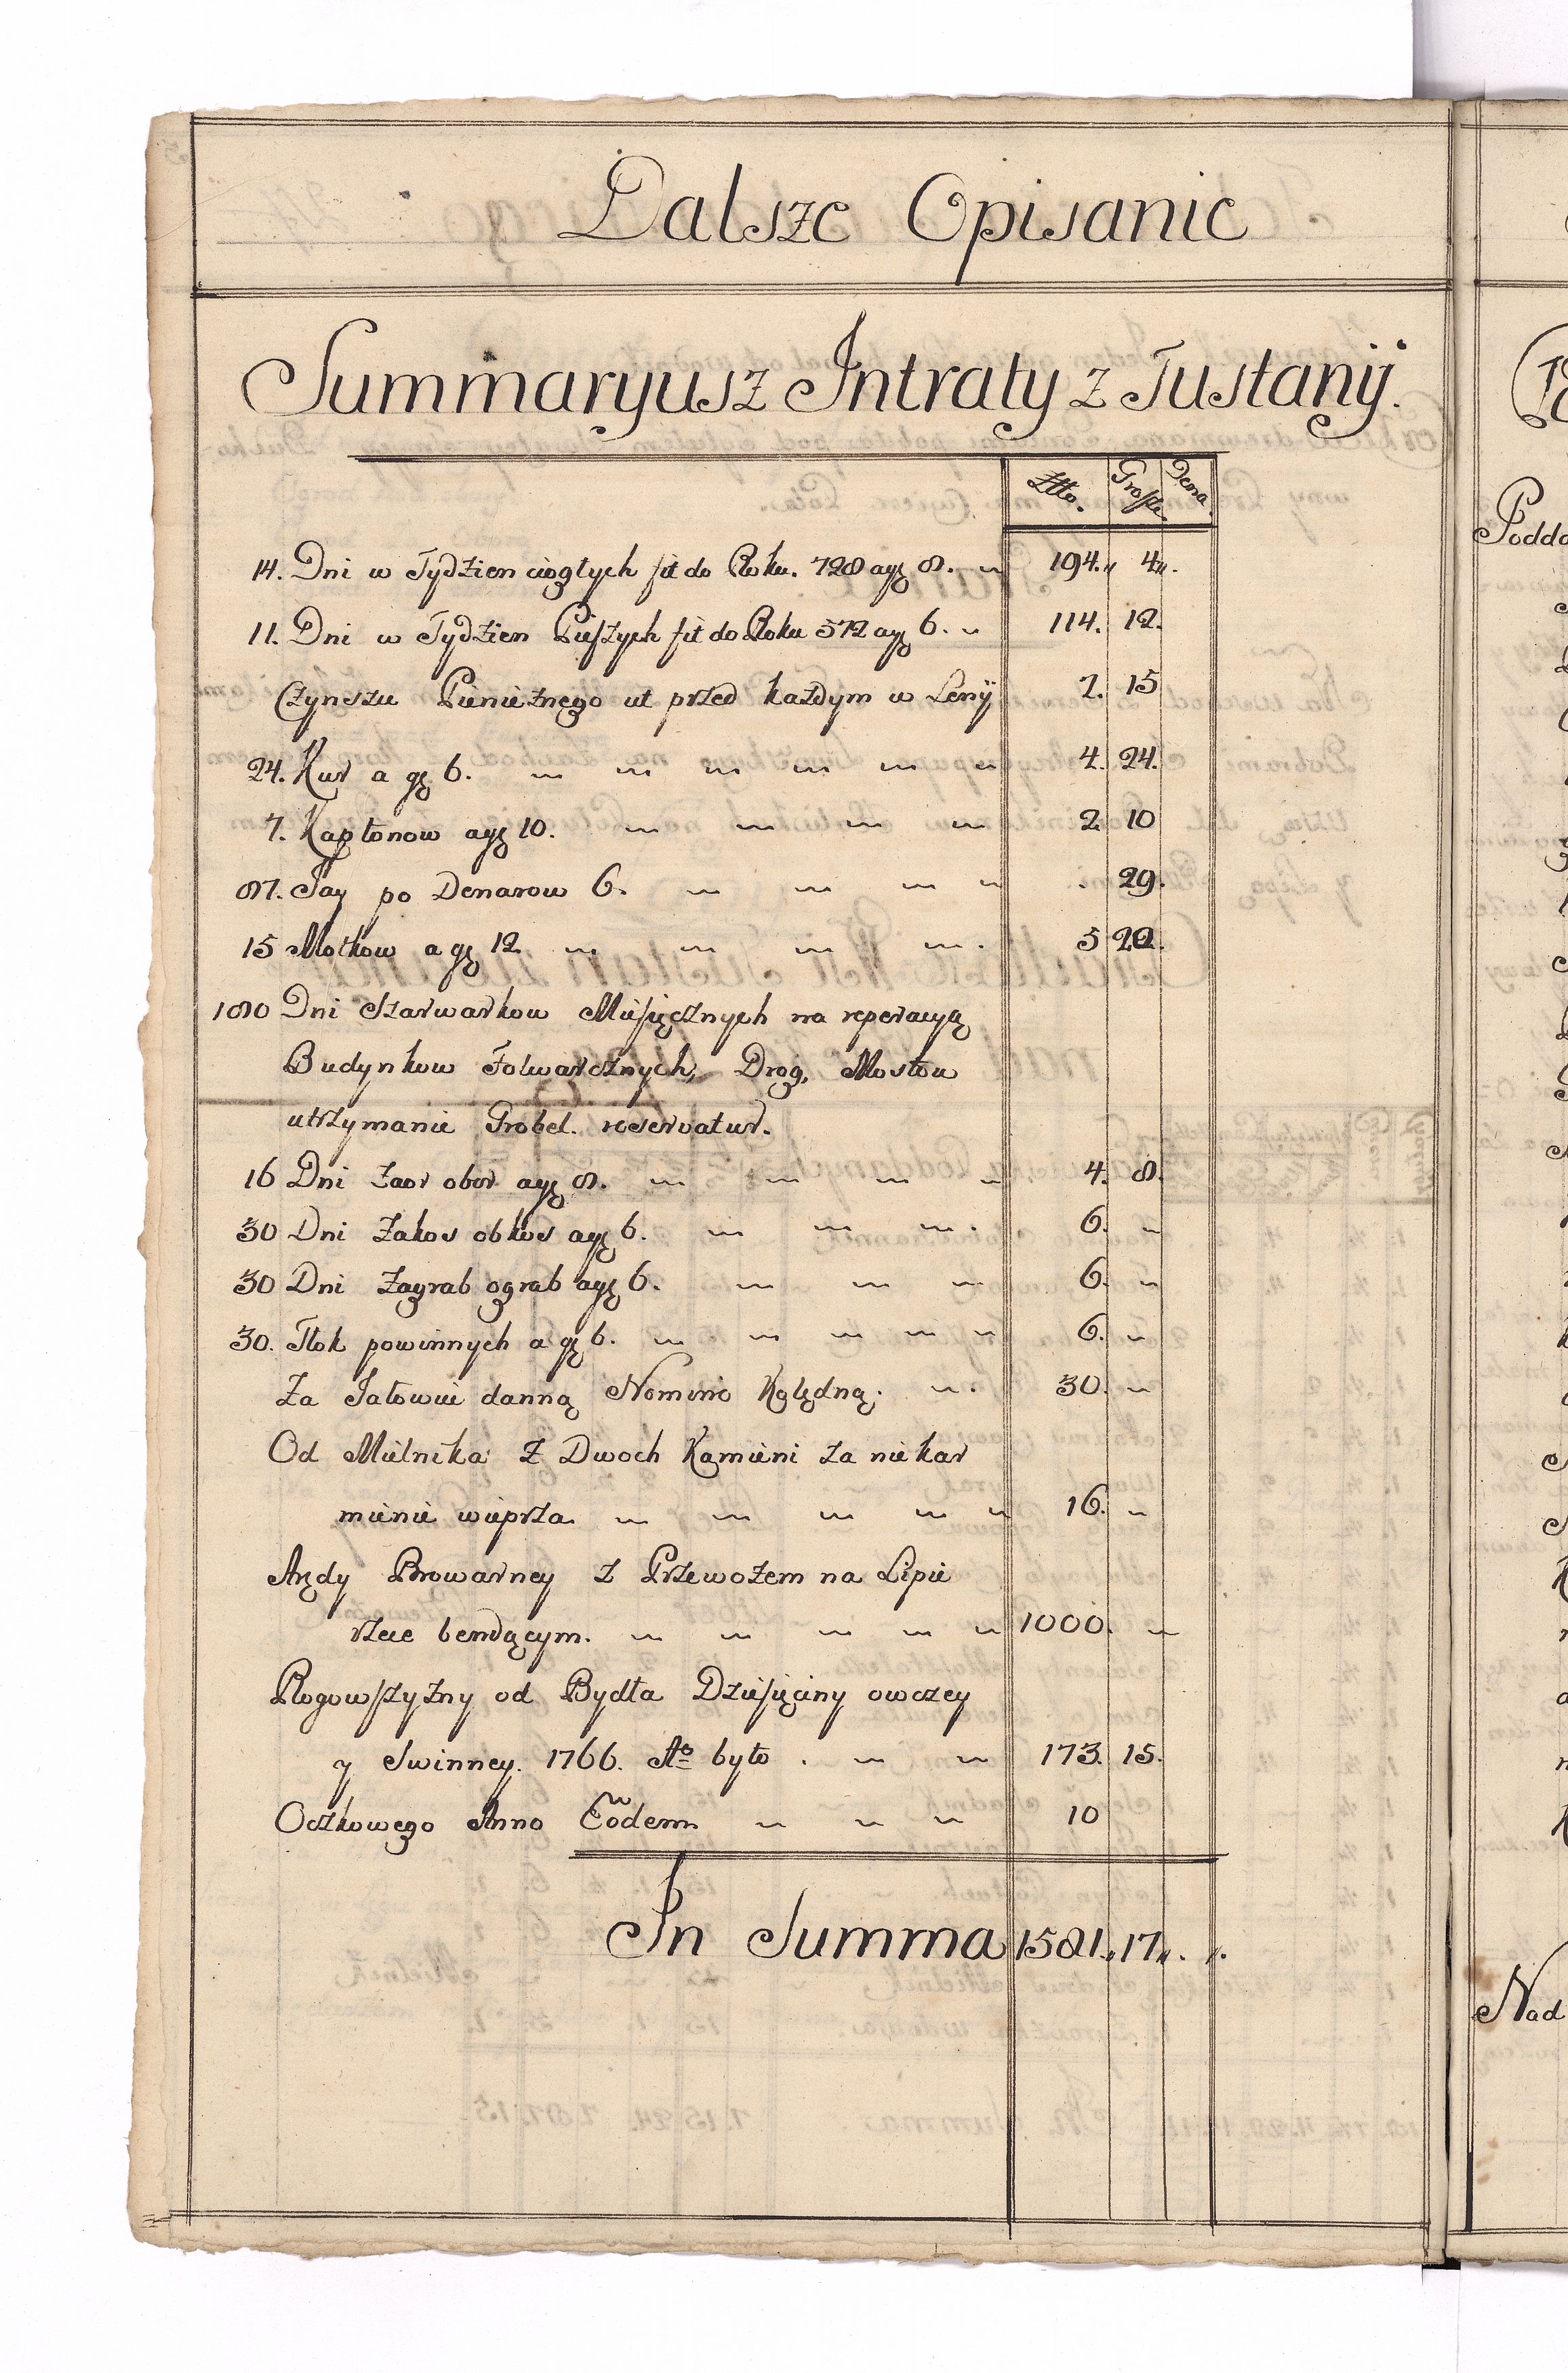 Dalsze Opisanie
Summaryusz Intraty z Tustanÿ.
Złło. Grosze. Dena.
14. Dni w Tydzien ciągłych fit do Roku. 728 a gr 8. 194. 4.
11. Dni w Tydzien Pieszych fit do Roku 572 a gr 6. 114. 12.
Czynszu Pienieznego ut przed kazdym w Lenÿ 7. 15
24. Kur a gr 6. 4. 24.
7. Kapłonow a gr 10. 2. 10
87. Jay po Denarow 6. . 29.
15 Motkow a gr 12 5
180 Dni Szarwarkow Miesięcznych na reperacyą
Budynkow Folwarcznych, Drog, Mostow
utrzymanie Grobel. reservatur.
16 Dni Zaor obor a gr 8. 4. 8.
30 Dni Zakos obkos a gr 6. 6.
30 Dni Zagrab ograb a gr 6. 6.
30. Tłok powinnych a gr 6. 6.
Za Jałowice danną Nomine Kolędną. 30.
Od Mielnika z Dwoch Kamieni za niekar
mienie wieprza 16.
Arędy Browarney z Przewozem na Lipie
rzece bendącym. 1000.
Rogowszyzny od Bydła Dziesięciny owczey
y Swinney. 1766. Ao było . 173. 15.
Oczkowego Anno Eodem 10
In Summa 1581. 17.
Poddа
Nad